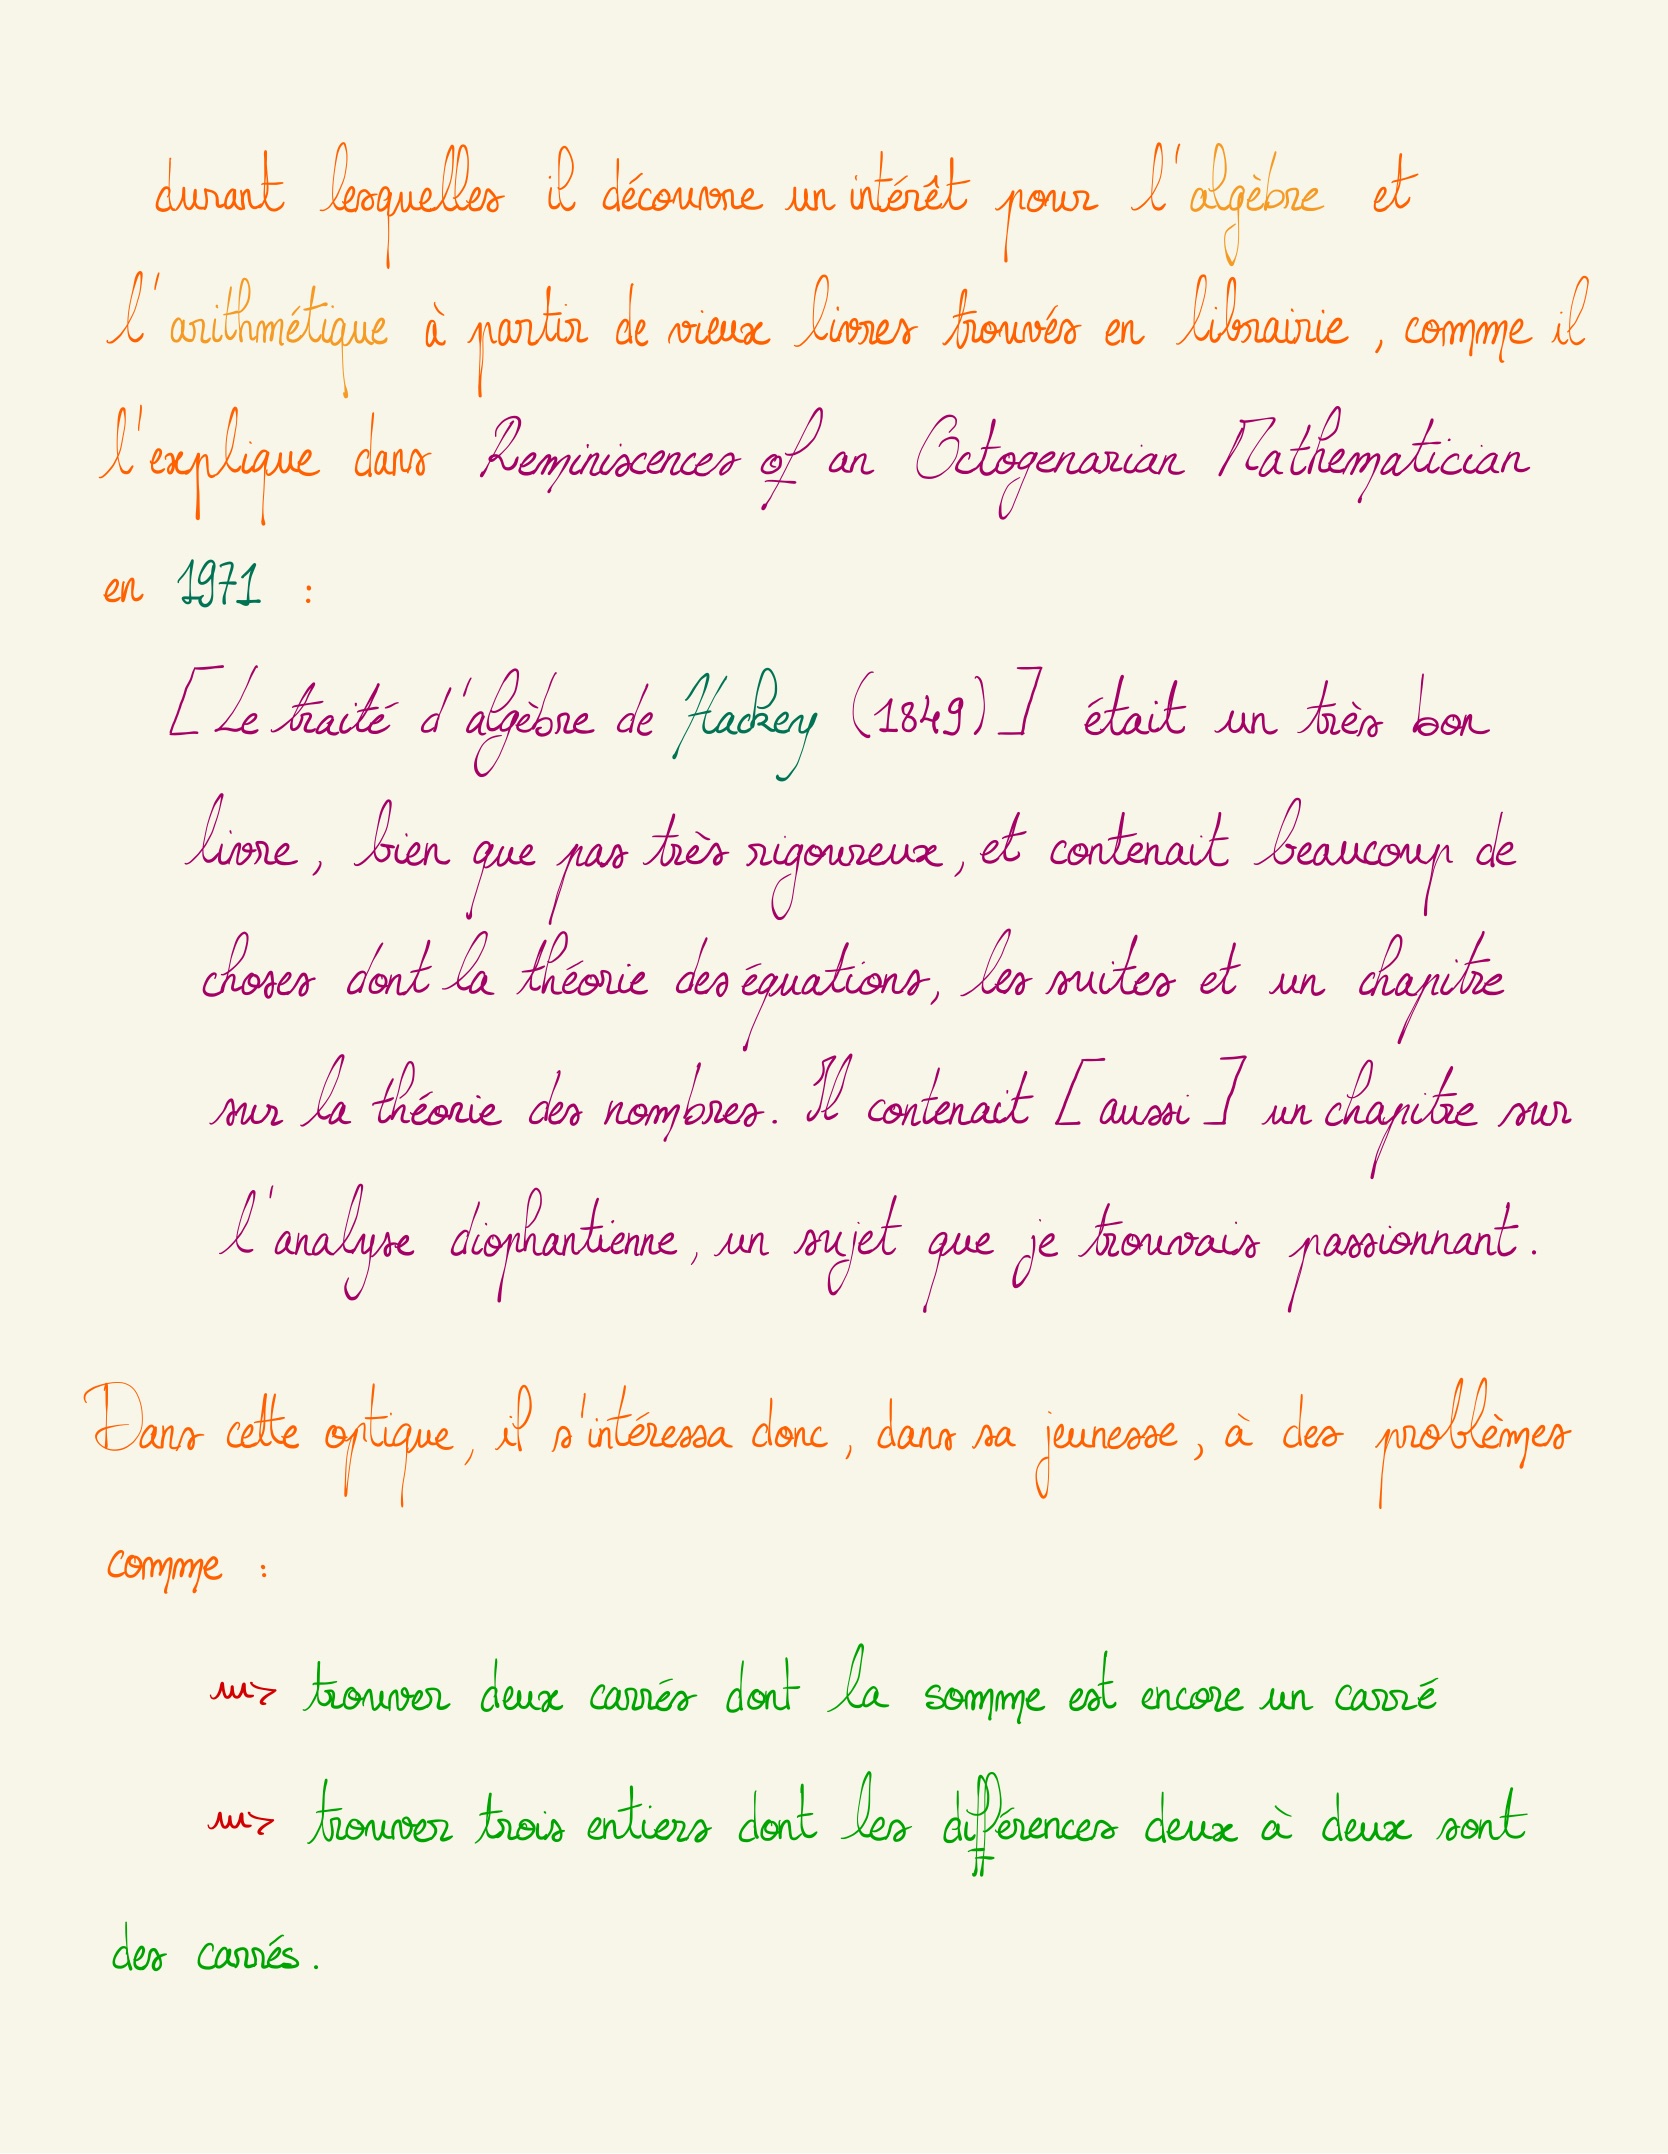 durant lesquelles il découvre un intérêt pour l'algèbre et
l'arithmétique à partir de vieux livres trouvés en librairie, comme il
l'explique dans Reminiscences of an Octogenarian Mathematician
en 1971 :
[Le traité d'algèbre de Hackey (1849)] était un très bon
livre, bien que pas très rigoureux, et contenait beaucoup de
choses dont la théorie des équations, les suites et un chapitre
sur la théorie des nombres. Il contenait [aussi] un chapitre sur
l'analyse diophantienne, un sujet que je trouvais passionnant.
Dans cette optique, il s'intéressa donc, dans sa jeunesse, à des problèmes
comme :
trouver deux carrés dont la somme est encore un carré
trouver trois entiers dont les différences deux à deux sont
des carrés.